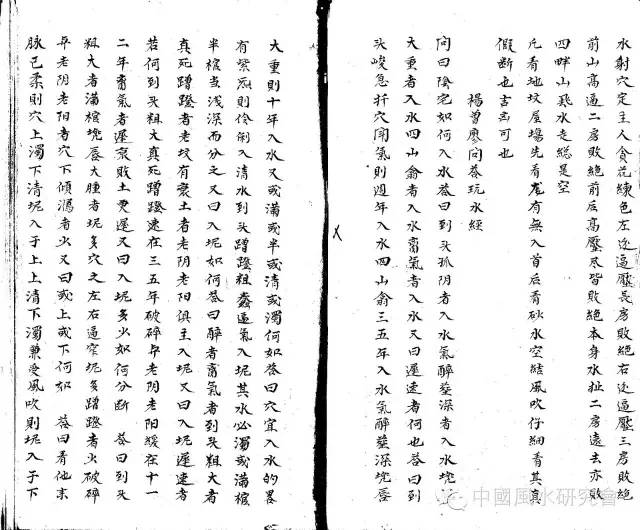 水射穴定主人貪花練色左边逼壓長房敗絕右边逼壓三房敗絕
前山高逼二房敗絕前后高壓尽皆敗絕本身水扯二房遠去亦敗
四畔山飛水走総是空
凡看地坟屋場先看龙有無入首后看砂水空缺風吹仔細看其真
假断也吉凶可也
楊曾廖问答玩水經
问曰陰宅如何入水答曰到头孤阴者入水氣醉塟深者入水坭唇
大重者入水四山禽者入水畜氣者入水又曰遲速者何也答曰到
头峻急扦穴闻氣則週年入水四山禽三五年入水氣醉塟深坭唇
大重則十年入水又或满或半或清或濁何如答曰穴宜入水的暑
有紫㾗則伶俐入清水到头蹭蹬粗蠢逼氣入坭其水必濁或满棺
半棺当浅深而分之又曰入坭如何答曰醉者畜氣者到头粗大者
真死蹭蹬者老坟有棄土者老阴老阳俱主入坭又曰入坭遲速者
若何到头粗大真死蹭蹬速在三五年破碎与老阴老阳緩在十一
二年畜氣者遲衰敗土更遲又曰入坭多火如何分断 答曰到头
粗大者满棺坭唇大腫者坭多穴之左右逼窄坭多蹭蹬者火破碎
与老阴老阳者穴下傾瀉者火又曰或上或下何如 答曰看他来
脉已柔則穴上濁下清坭入于上上清下濁兼受風吹則坭入于下
中國風水研究會